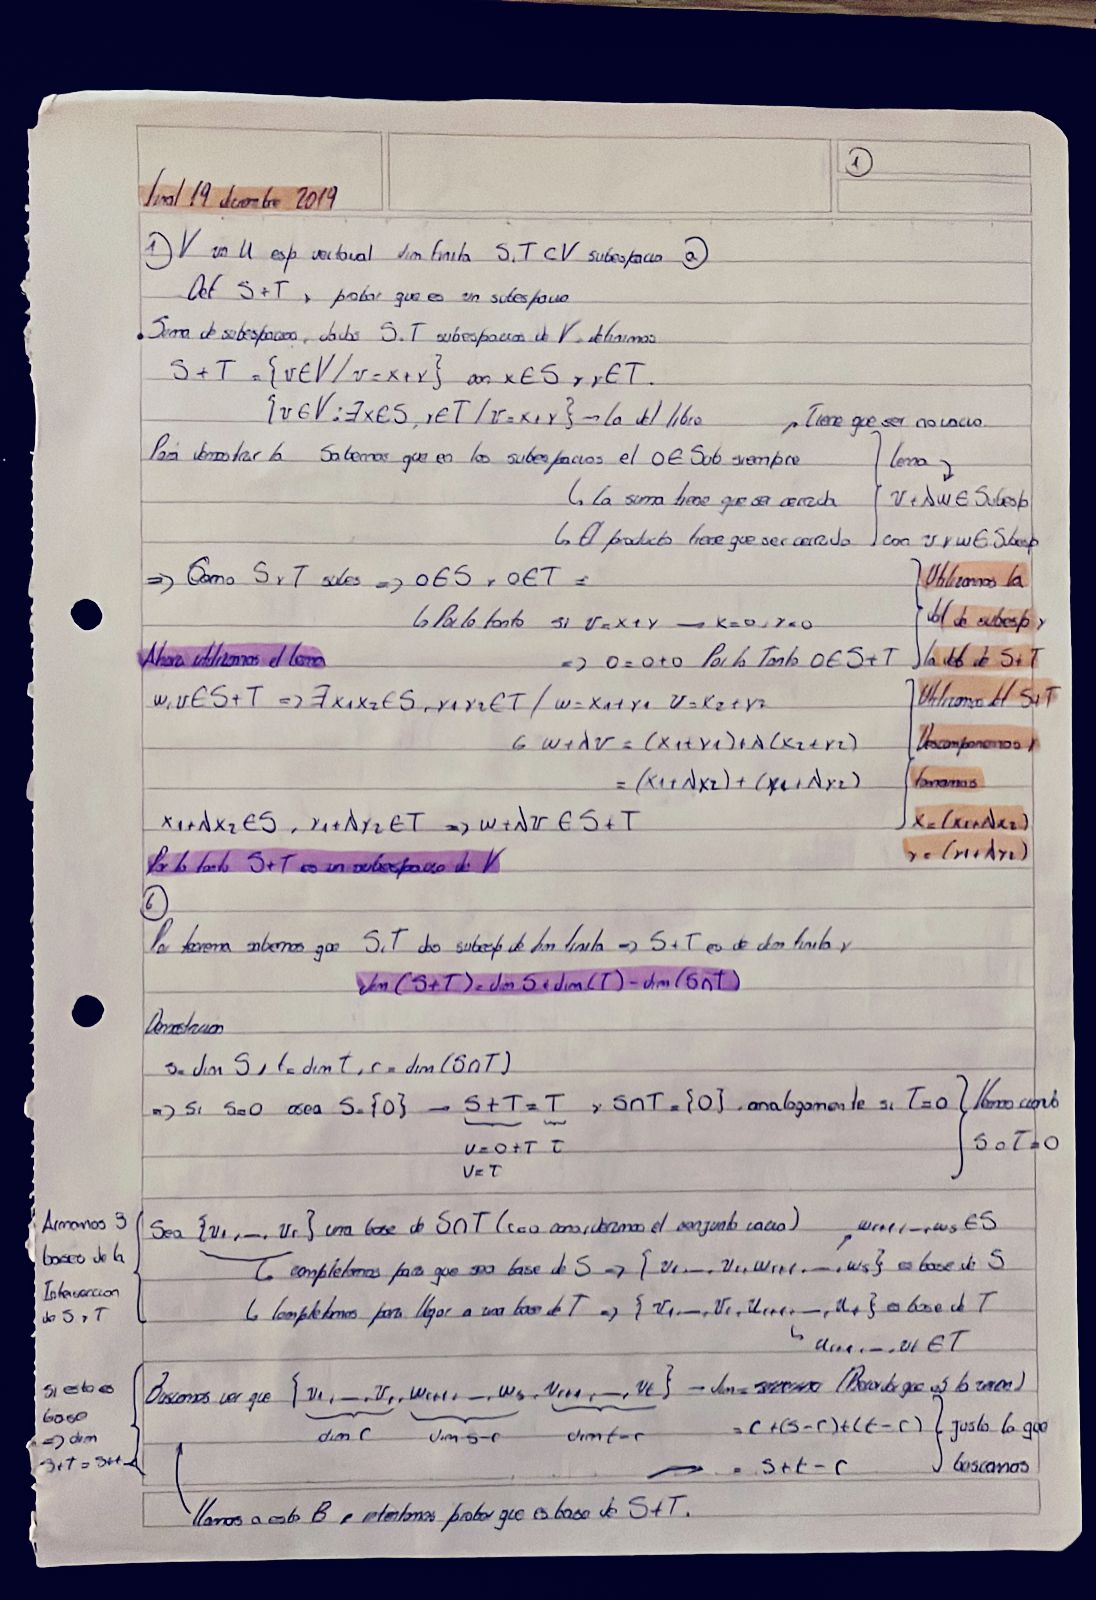 final 19 diciembre 2019
1
1) V un K esp vectorial dim finita S,T ⊂ V subespacio a
Def S+T y probar que es un subespacio
• Suma de subespacios, dados S,T subespacios de V definimos
S+T = {v∈V / v=x+y} con x∈S y y∈T.
{v∈V : ∃x∈S, y∈T / v=x+y} → la del libro
Tiene que ser no vacio
Para demostrar la Sabemos que en los subespacios el 0∈Sub siempre
lema
↳ La suma tiene que ser cerrada
v+λw ∈ Subesp
↳ El producto tiene que ser cerrado
con v y w ∈ Subesp
=> Como S y T subes => 0∈S y 0∈T =
Utilizamos la
↳ Por lo tanto si v=x+y → x=0, y=0
def de subesp y
Ahora utilizamos el lema
=> 0=0+0 Por lo Tanto 0∈S+T
la def de S+T
w,v∈S+T => ∃x₁x₂∈S, y₁y₂∈T / w=x₁+y₁ v=x₂+y₂
Utilizamos def S+T
↳ w+λv = (x₁+y₁)+λ(x₂+y₂)
Descomponemos y
= (x₁+λx₂)+(y₁+λy₂)
tomamos
x₁+λx₂∈S, y₁+λy₂∈T => w+λv ∈ S+T
x=(x₁+λx₂)
y=(y₁+λy₂)
Por lo tanto S+T es un subespacio de V
b
Por teorema sabemos que S,T dos subesp de dim finita => S+T es de dim finita y
dim(S+T)=dim S+dim(T)-dim(S∩T)
Demostracion
s=dim S, t=dim T, r=dim(S∩T)
=> si s=0 osea S={0} → S+T=T y S∩T={0}. analogamente si T=0
v=0+T T
v=T
S o T=0
Armamos 3
bases de la
Interseccion
de S y T
Sea {v₁,...,vᵣ} una base de S∩T (r=0 consideramos el conjunto vacio)
wᵣ₊₁,...,wₛ ∈ S
↳ completamos para que sea base de S => {v₁...,vᵣ,wᵣ₊₁,...,wₛ} es base de S
↳ Completamos para llegar a una base de T => {v₁,...,vᵣ,uᵣ₊₁,...,uₜ} es base de T
↳ uᵣ₊₁,...,uₜ ∈ T
si esto es
base
=> dim
S+T = s+t-r
Buscamos ver que {v₁,...,vᵣ,wᵣ₊₁,...,wₛ,vᵣ₊₁,...,vₜ} → dim=
dim r dim s-r dim t-r
= r+(s-r)+(t-r)
justo lo que
= s+t-r
buscamos
llamos a esto B e intentamos probar que es base de S+T.